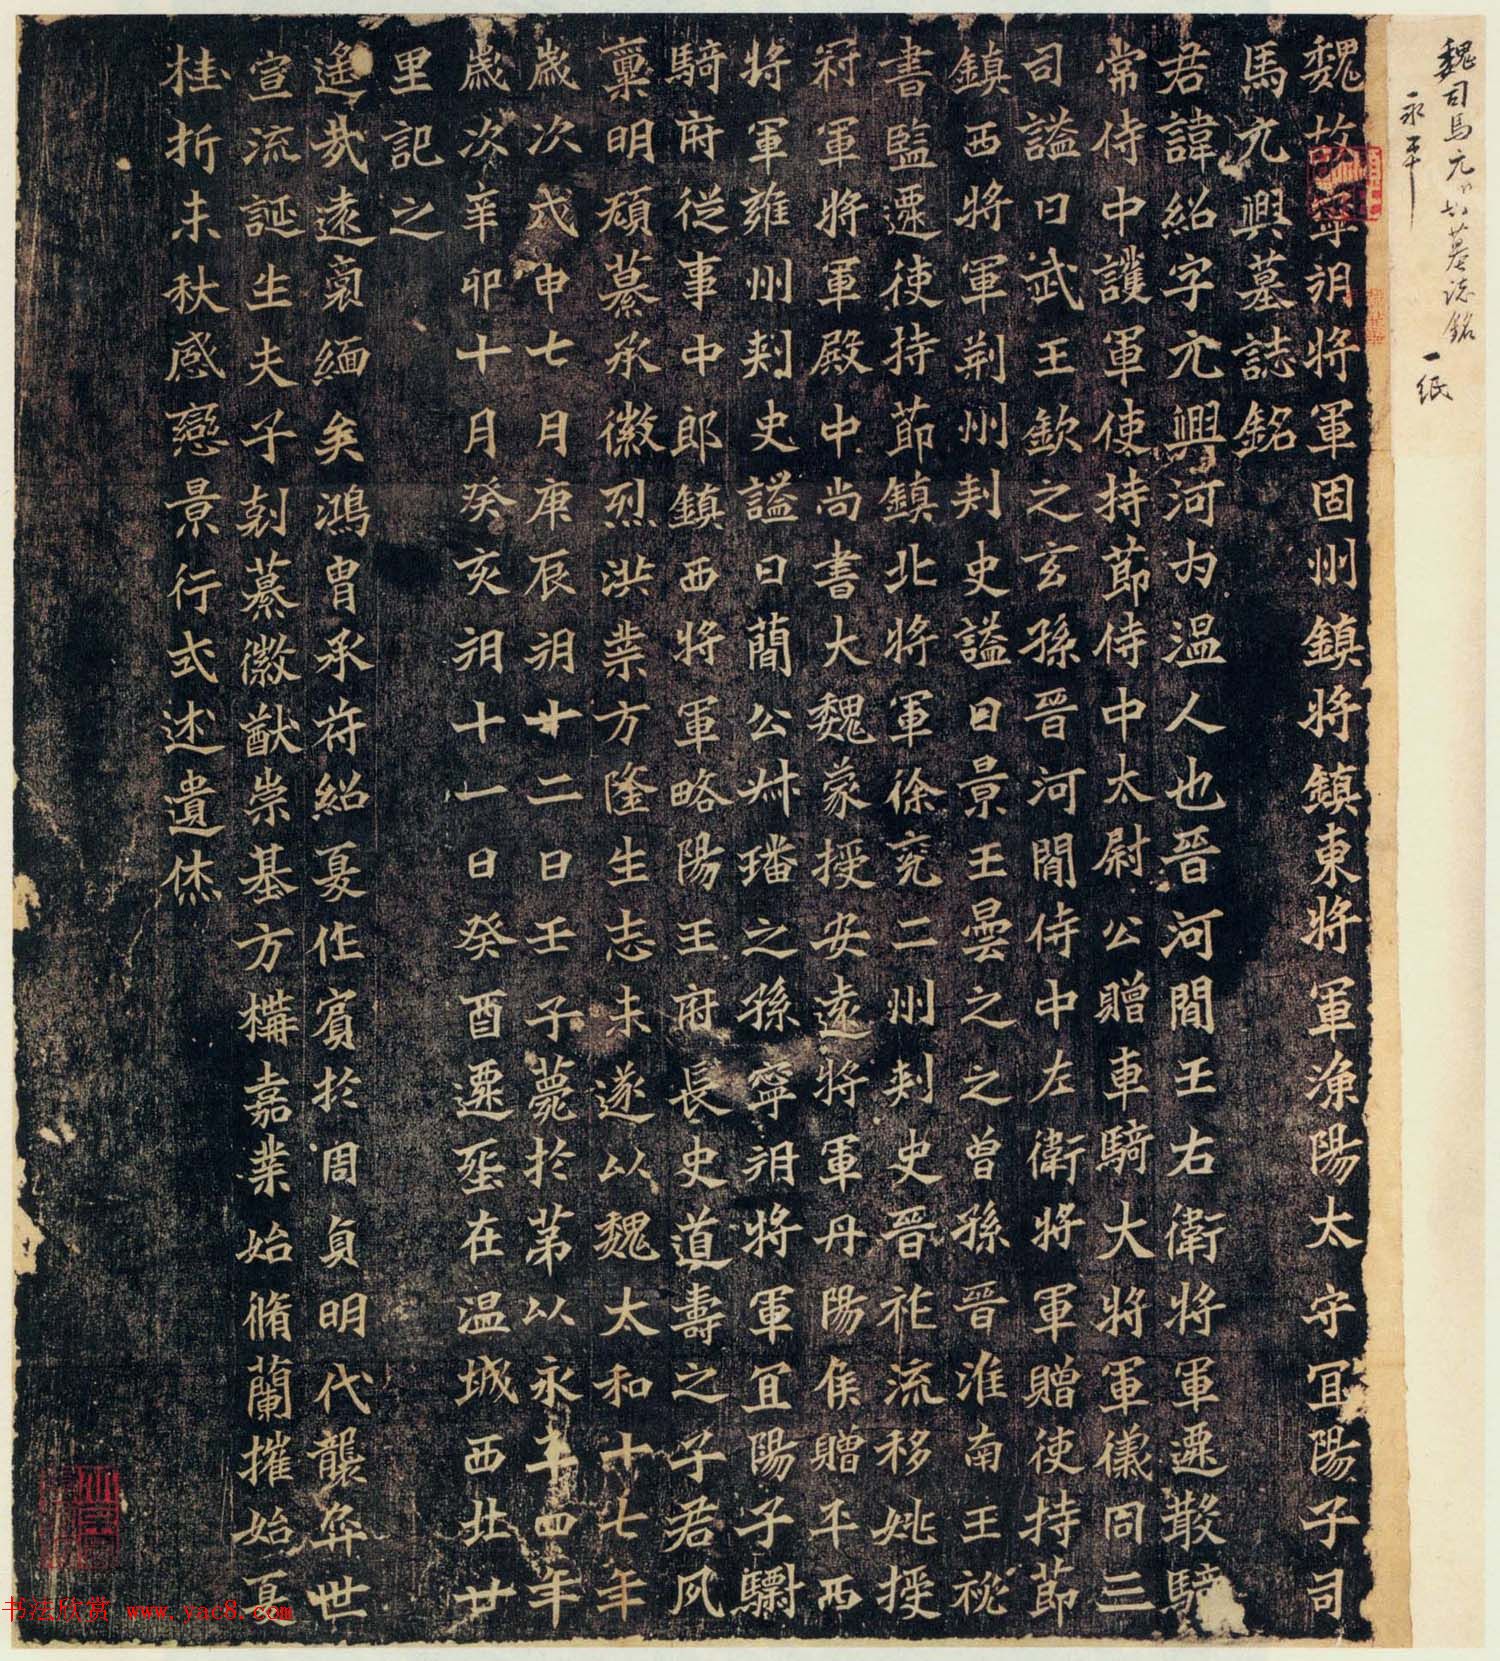 魏司馬元興墓誌銘 一紙
永平
魏故寧朔將軍固州鎮將鎮東將軍漁陽太守宜陽子司
馬元興墓誌銘
君諱紹字元興河內温人也晉河間王右衛將軍遷散騎
常侍中護軍使持節侍中太尉公贈車騎大將軍儀同三
司謚曰武王欽之玄孫晉河間侍中左衛將軍贈使持節
鎮西將軍荊州刺史謚曰景王曇之之曾孫晉淮南王祕
書監遷使持節鎮北將軍徐兗二州刺史晉祚流移姚授
冠軍將軍殿中尚書大魏蒙授安遠將軍丹陽侯贈平西
將軍雍州刺史謚曰簡公叔璠之孫寧朔將軍宜陽子驃
騎府從事中郎鎮西將軍略陽王府長史道壽之子君夙
稟明頑纂承徽烈洪業方隆生志未遂以魏大和十七年
歲次戊申七月庚辰朔廿二日壬子薨於苐以永平四年
歲次辛卯十月癸亥朔十一日癸酉遷塟在温城西北廿
里記之
遙哉遠裔緬矣鴻冑承苻紹夏作賓於周貞明代襲弈世
宣流誕生夫子剋纂徽猷崇基方構嘉業始脩蘭摧始夏
桂折未秋感戀景行式述遺烋
书法欣赏 www.yac8.com